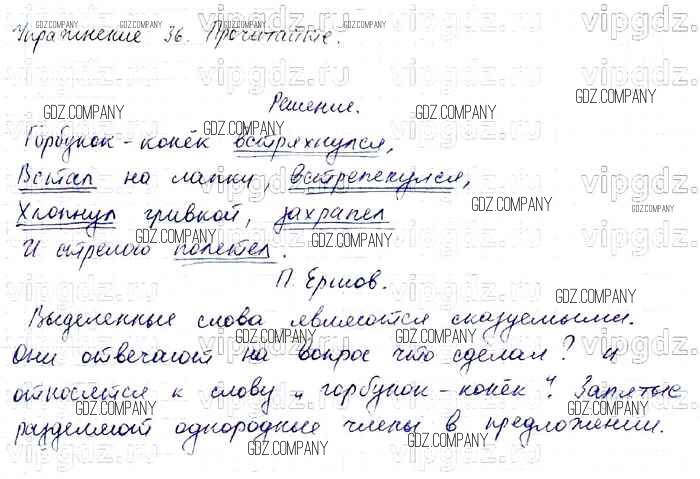 Упражнение 36. Прочитайте.
Решение.
Горбунок-конёк встряхнулся,
Встал на лапки, встрепенулся,
Хлопнул гривкой, захрапел
И стрелою полетел.
П. Ершов.
Выделенные слова являются сказуемыми.
Они отвечают на вопрос что сделал? и
относятся к слову „горбунок-конёк". Запятые
разделяют однородные члены в предложении.